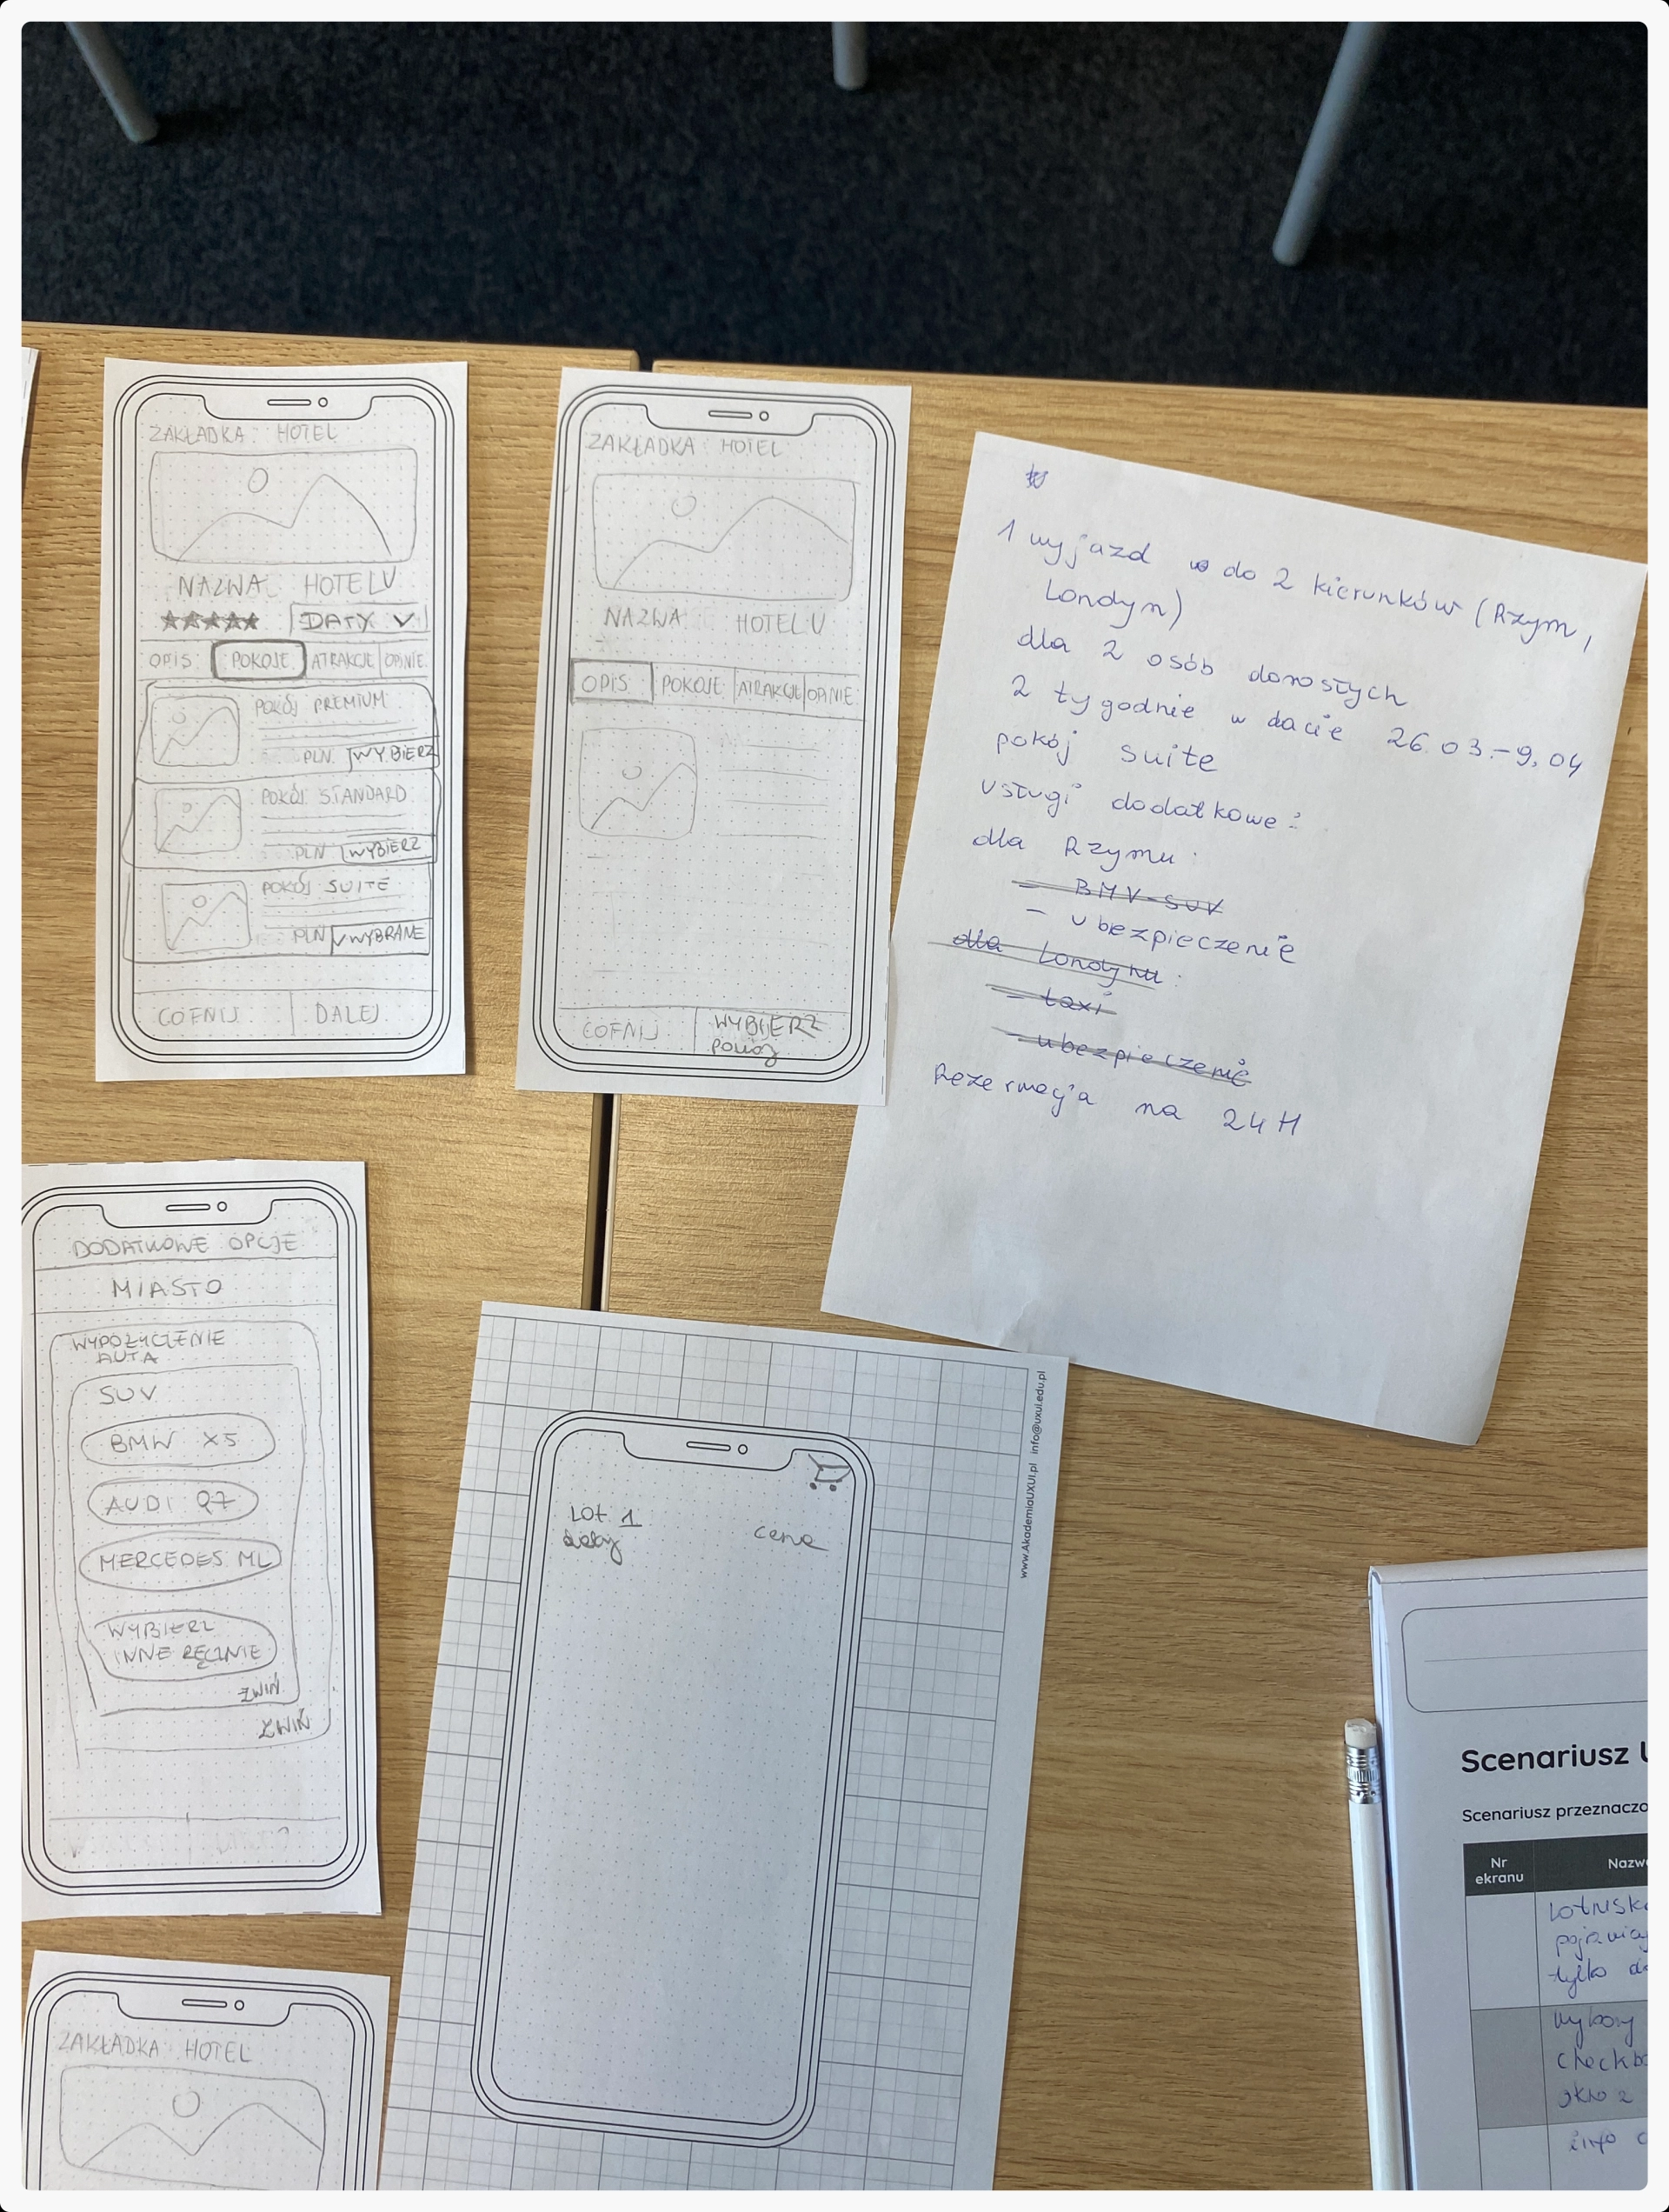 ZAKŁADKA HOTEL
NAZWA HOTELU
DATY
OPIS POKOJE ATRAKCJE OPINIE
POKÓJ PREMIUM
PLN WYBIERZ
POKÓJ STANDARD
PLN WYBIERZ
POKÓJ SUITE
PLN WYBRANE
COFNIJ DALEJ
ZAKŁADKA HOTEL
NAZWA HOTELU
OPIS POKOJE ATRAKCJE OPINIE
COFNIJ WYBIERZ
pokój
1 wyjazd do 2 kierunków (Rzym,
Londyn)
dla 2 osób dorosłych
2 tygodnie w dacie 26.03.-9.04
pokój suite
usługi dodatkowe:
dla Rzymu:
- BMV-SUV
- ubezpieczenie
dla Londynu:
- taxi
- ubezpieczenie
Rezerwacja na 24H
DODATKOWE OPCJE
MIASTO
WYPOŻYCZENIE
AUTA
SUV
BMW X5
AUDI Q7
MERCEDES ML
WYBIERZ
INNE RĘCZNIE
ZWIŃ
ZWIŃ
Lot 1
daty
cena
www.AkademiaUXUI.pl info@uxui.edu.pl
ZAKŁADKA HOTEL
Scenariusz
Scenariusz przeznaczo
Nr
ekranu
Nazw
tylko
wybory
checkb
okno 2
info